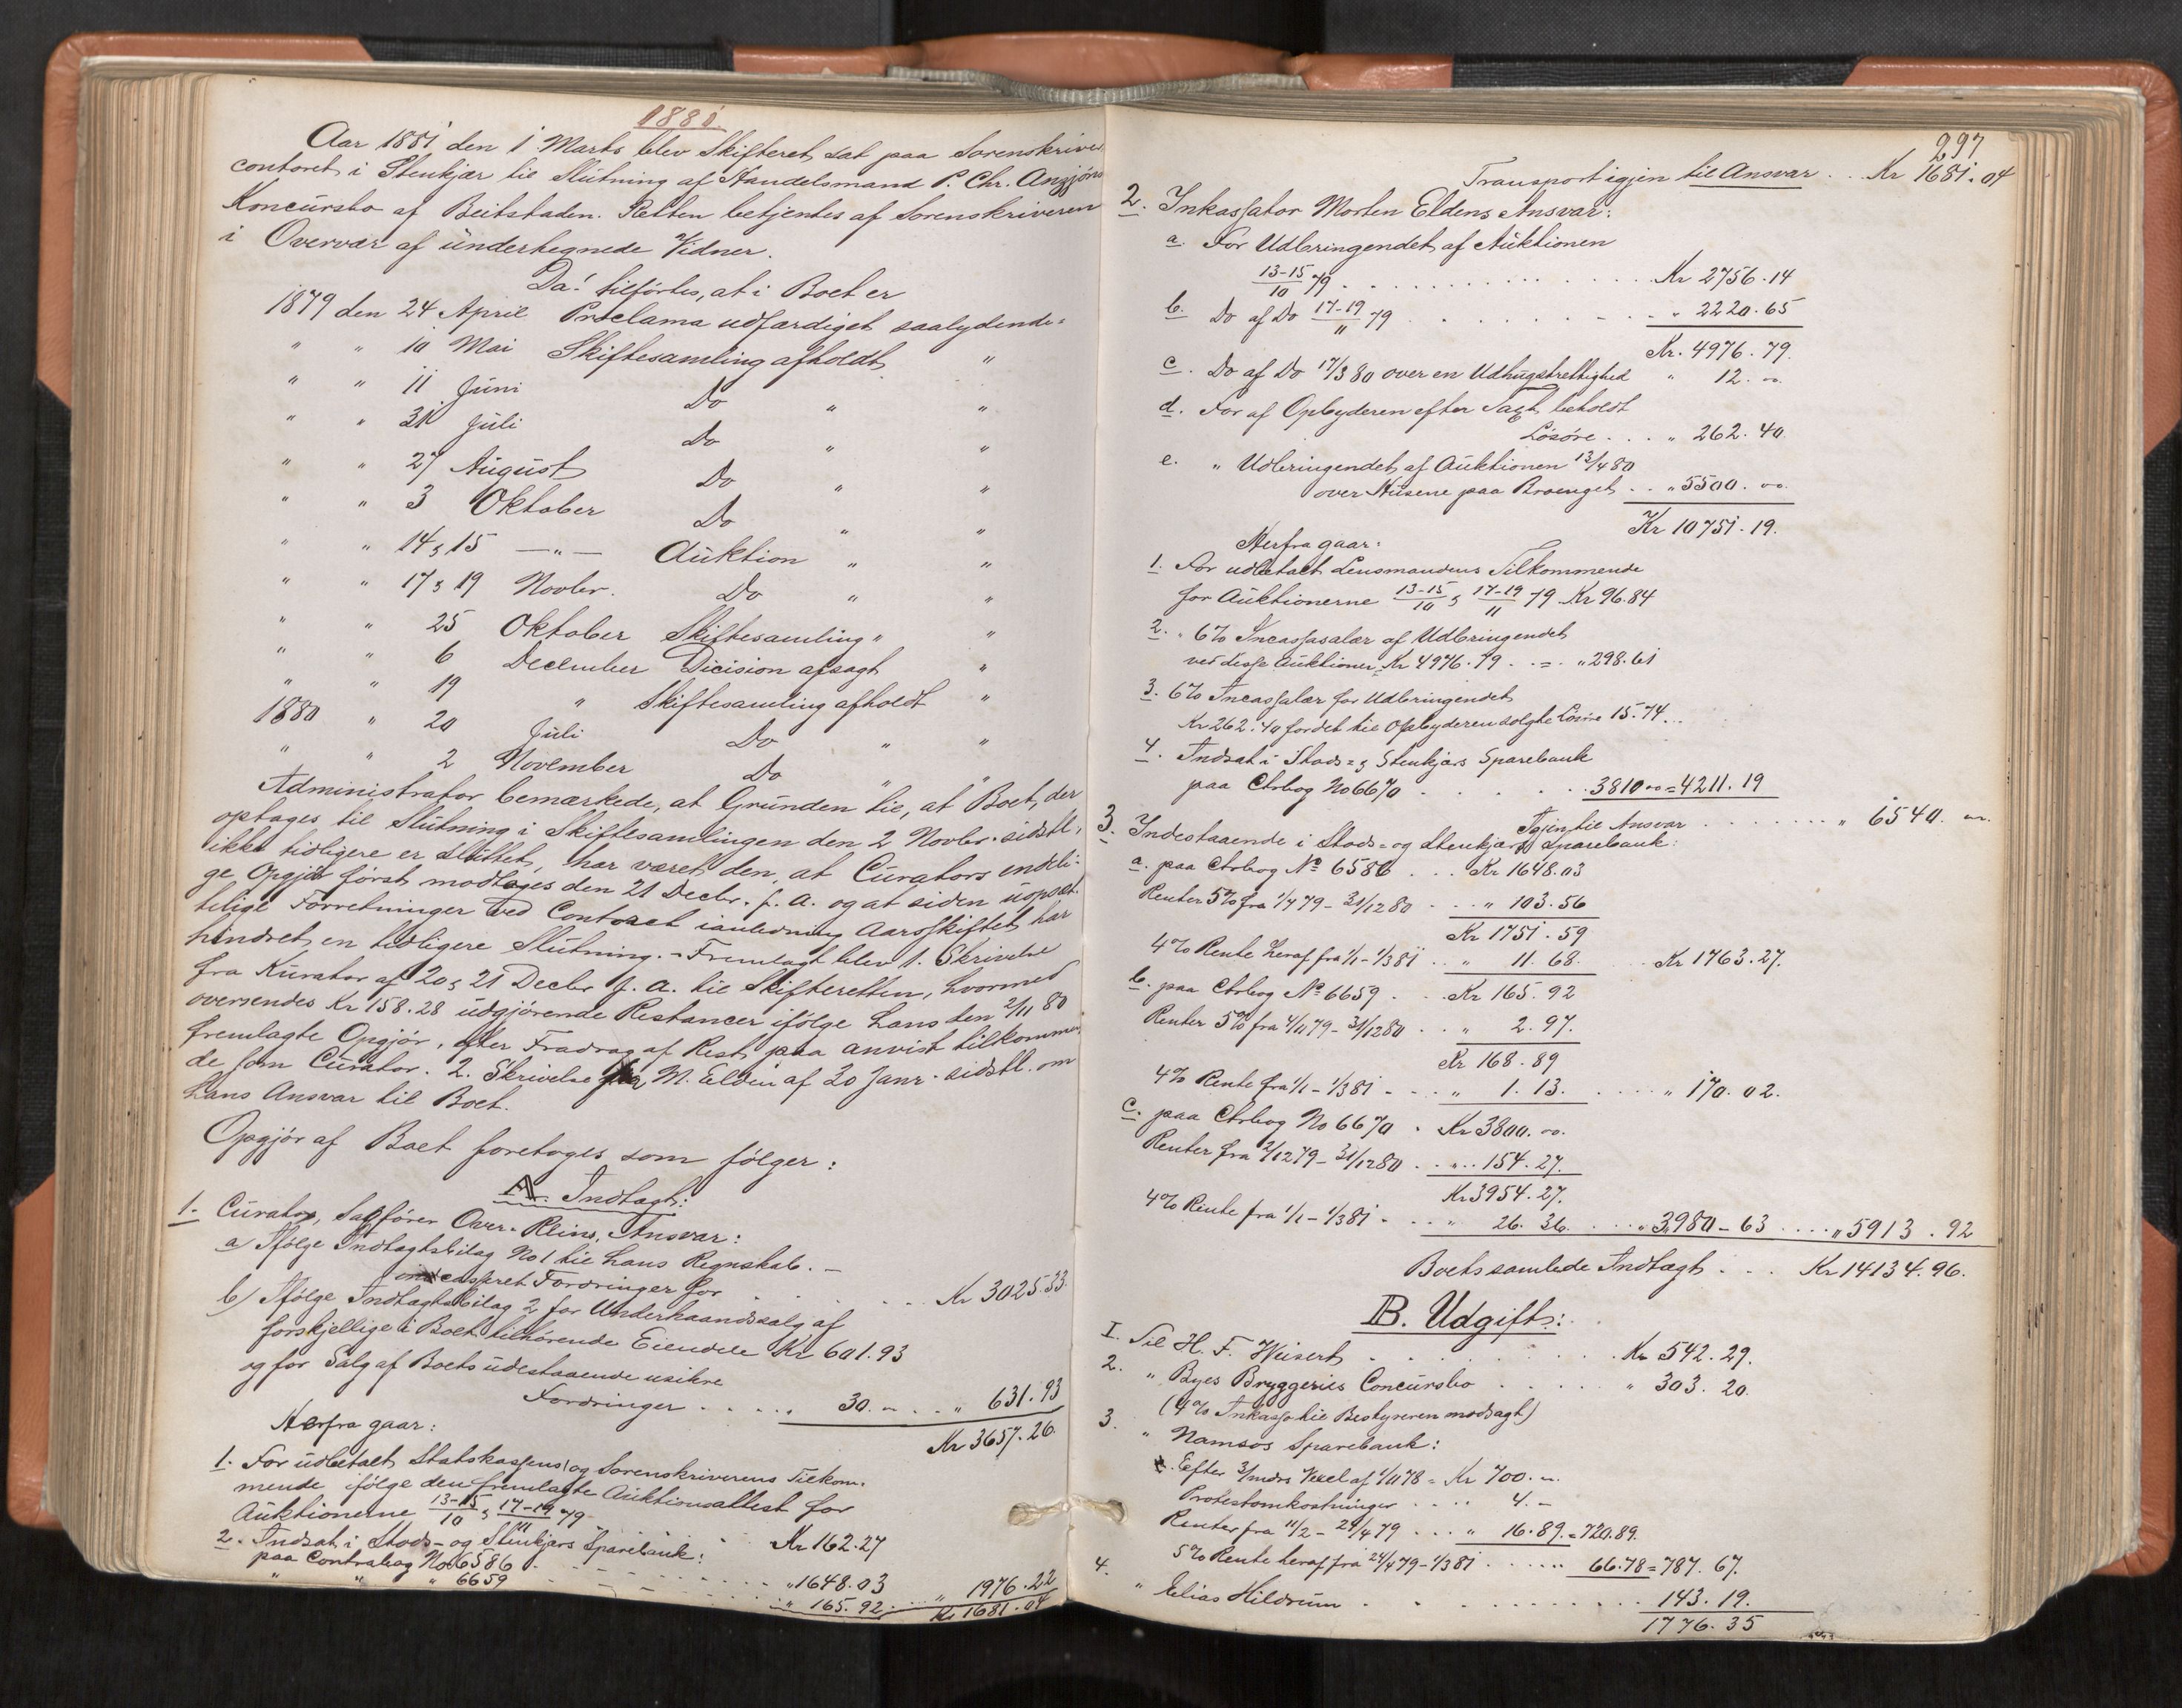 1881.
Aar 1881 den 1 Marts blev Skifteret sat paa Sorenskriver
contoret i Stenkjær til Slutning af Handelsmand P. Chr.
Koncursbo af Beitstaden. Retten betjentes af Sorenskriveren
i Overvær af undertegnede Vidner.
Da: tilførtes, at i Boet er
1879 den 24 April Proclama udfærdiget saalydende:
" " 10 Mai Skiftesamling afholdt "
" " 11 Juni Do " "
" " 31 Juli Do " "
" " 27 August Do " "
" " 3 Oktober Do " "
" " 14 & 15 —"— Auktion " "
" " 17 & 19 Novbr. Do " "
" " 25 Oktober Skiftesamling " "
" " 6 December Dicision afsagt "
" " 19 " Skiftesamling afholdt "
1880 " 20 Juli Do " "
" " 2 November Do " "
Administrator bemærkede, at Grunden til, at Boet, der
optages til Slutning i Skiftesamlingen den 2 Novbr. sidstl.
ikke tidligere er sluttet, har været den, at Curators endeli-
ge Opgjør først modtoges den 21 Decbr. f. A. og at siden uopsæt-
telige Forretninger ved Contoret ianledning Aarsskiftet har
hindret en tidligere Slutning. - Fremlagt blev 1. Skrivelse
fra Kurator af 20 & 21 Decbr f. A. til Skifteretten, hvormed
oversendes Kr 158.28 udgjørende Restancer ifølge hans den 2/11 80
fremlagte Opgjør, efter Fradrag af Rest paa anvist tilkommen
de som Curator. 2. Skrivelse fra M. Elden af 30 Janr. sidstl. om
hans Ansvar til Boet.
Opgjør af Boet foretages som følger:
A. Indtægt:
1. Curator, Sagfører Over-Reins, Ansvar:
a) Ifølge Indtægtsbilag No 1 til hans Regnskab. -
indcasseret Fordringer for . . . Kr 3025.33.
b) Ifølge Indtægtsbilag 2 for Underhaandssalg af
forskjellige i Boet tilhørende Eiendele Kr 601.93
og for Salg af Boets udestaaende usikre
Fordringer . . . . . 30. - . . " 631.93
Kr 3657.26.
Herfra gaar:
1. For udbetalt Statskassens og Sorenskriverens Tilkom-
mende ifølge den fremlagte Auktionsattest for
Auktionerne 13-15/10 & 17-19/11 79 Kr 162.27
2. Indsat i Stods- og Stenkjærs Sparebank:
paa Contrabog No 6586 . . . " 1648.03
" " " 6659 . . . " 165.92 . . " 1976.22
Kr 1681.04
297
Transport igjen til Ansvar . . Kr 1681.04
2. Inkassator Morten Eldens Ansvar:
a. For Udbringendet af Auktionen
13-15/10 79 . . . . . . Kr 2756.14
b. Do af Do 17-19/11 79 . . . . . . " 2220.65
Kr. 4976.79.
c. Do af Do 17/3 80 over en Udhugstrettighed " 12. "
d. For af Opbyderen efter Taxt beholdt
Løsøre . . . " 262.40.
e. " Udbringendet af Auktionen 13/4 80
over Husene paa Broenget . . " 5500. "
Kr 10751.19.
Herfra gaar:
1. For udbetalt Lensmandens Tilkommende
for Auktionerne 13-15/10 & 17-19/11 79 Kr 96.84
2. " 6% Incassosalær af Udbringendet
ved disse Auktioner Kr 4976.79 . . = . " 298.61
3. 6% Incassalær for Udbringendet
Kr 262.40 for det til Opbyderen solgte Løsøre 15.74
4. Indsat i Stods- & Stenkjærs Sparebank
paa Ctrbog No 6670 . . . . 3810 " = 4211.19
Igjen til Ansvar . . . . " 6540. "
3. Indestaaende i Stods- og Stenkjærs Sparebank:
a. paa Ctrbog No 6586 . . . Kr 1648.03
Renter 5% fra 1/4 79 - 31/12 80 . . . " 103.56
Kr 1751.59
4% Rente heraf fra 1/1 - 1/3 81 . . " 11.68. . . Kr 1763.27.
b. paa Ctrbog No 6659 . . . Kr 165.92
Renter 5% fra 4/11 79 - 31/12 80 . . " 2.97.
Kr 168.89
4% Rente fra 1/1 - 1/3 81 . . . " 1.13. . . . . " 170.02.
c. paa Ctrbog No 6670 . Kr 3800. "
Renter fra 2/12 79 - 31/12 80 . . " . . 154.27.
Kr 3954.27.
4% Rente fra 1/1 - 1/3 81 . . . " 26.36. . . . " 3980 - 63 . . . . " 5913.92
Boets samlede Indtægt . . . Kr 14134.96.
B. Udgift:
I. Til H. F. Weisert . . . . . . Kr 542.29.
2. " Byes Bryggeries Concursbo . . . . " 303.20.
(4% Inkasso til Bestyreren modsagt)
3. " Namsos Sparebank:
Efter 3/mdrs Vexel af 1/11 78 = Kr 700. "
Protestomkostninger . . . . " 4. -
Renter fra 11/2 - 24/4 79 . . . " 16.89. = 720.89.
5% Rente heraf fra 24/4 79 - 1/3 81 . . . . . . 66.78 = 787.67.
4. " Elias Hildrum . . . . . . 143.19.
1776.35